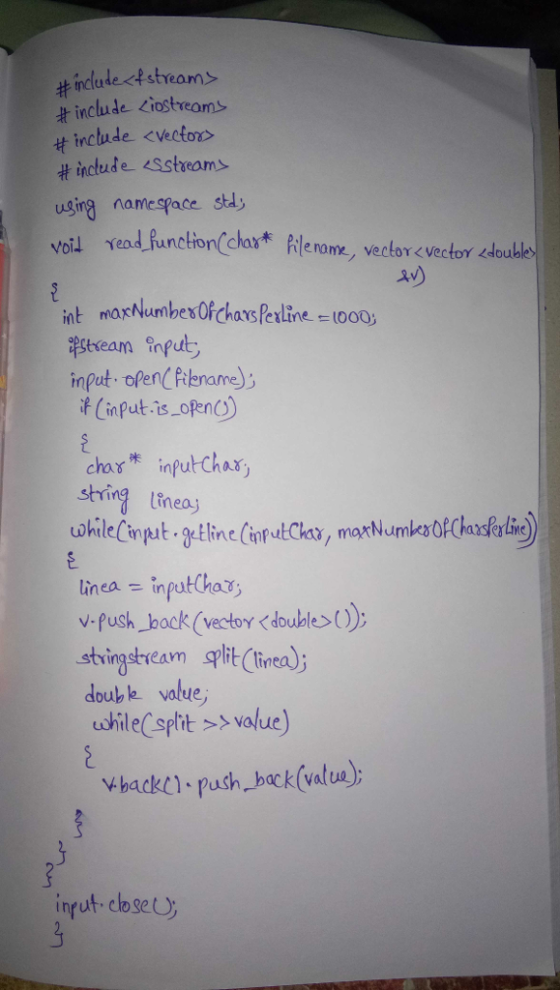 #include<fstream>
#include <iostream>
#include <vector>
#include <sstream>
using namespace std;
void read_function(char* filename, vector<vector<double>
&v)
{
int maxNumberOfCharsPerLine=1000;
ifstream input;
input.open(filename);
if(input.is_open())
{
char* inputChar;
string linea;
while(input.getline(inputChar, maxNumberOfCharsPerLine))
{
linea = inputChar;
v.push_back(vector<double>());
stringstream split(linea);
double value;
while(split>>value)
{
v.back().push_back(value);
}
}
}
input.close();
}